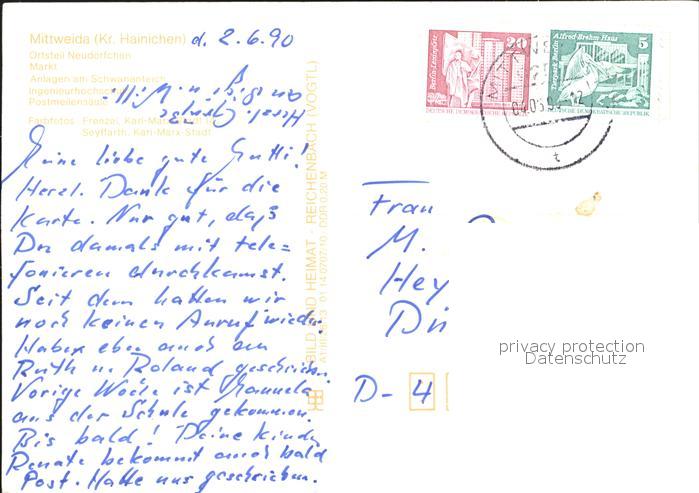 Mittweida (Kr. Hainichen)
d. 2.6.90
Ortsteil Neudörfchen
Markt
Anlagen am Schwanenteich
Ingenieurhochschule
Postmeilensäule
Farbfotos: Frenzel, Karl-Marx-Stadt
Seyffarth, Karl-Marx-Stadt
Herzl. Grüße
Meine liebe gute Gutti!
Herzl. Dank für die
Karte. Nur gut, daß
Du damals mit tele=
fonieren durchkamst.
Seit dem hatten wir
noch keinen Anruf wieder.
Haben eben auch an
Ruth u. Roland geschrieben.
Vorige Woche ist Manuela
aus der Schule gekommen.
Bis bald! Deine Kinder
Renate bekommt auch bald
Post. Hatte uns geschrieben.
BILD UND HEIMAT · REICHENBACH (VOGTL)
DDR 0,20 M
Berlin-Leninplatz
20
DEUTSCHE DEMOKRATISCHE REPUBLIK
Tierpark Berlin
Alfred-Brehm-Haus
5
DEUTSCHE DEMOKRATISCHE REPUBLIK
t
Frau
M.
Hey
Di
D- 4
privacy protection
Datenschutz